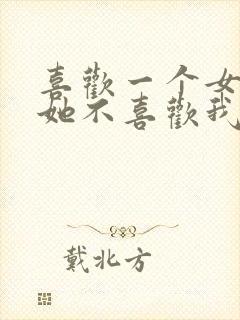 喜歡一个女
她不喜歡我
戴北方